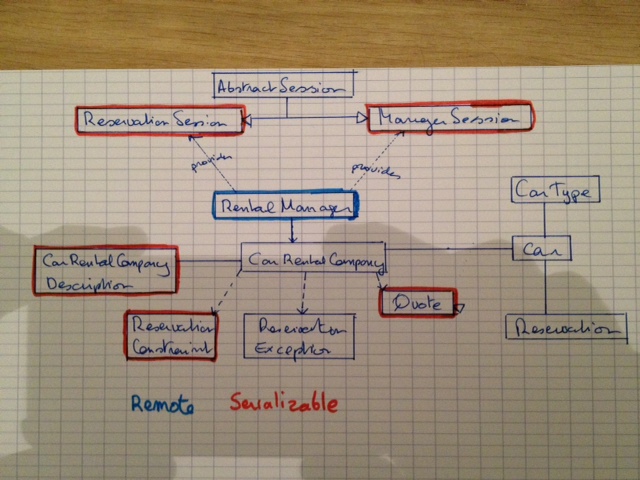 AbstractSession
ReservationSession
ManagerSession
provides
provides
Rental Manager
CarType
CarRentalCompany
Description
CarRentalCompany
Car
Quote
Reservation
Constraint
Reservation
Exception
Reservation
Remote
Serializable